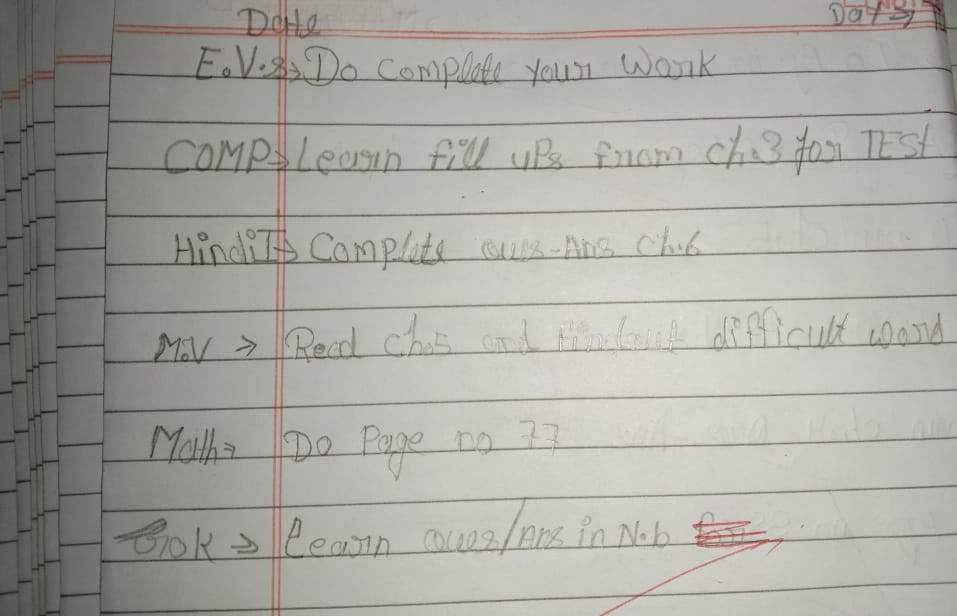 Date Day →
E.V.S → Do Complete your Work
COMP → Learn fill ups from ch.3 for TEST
Hindi → Complete Ques-Ans Ch.6
M.V → Read Ch.5 and findout difficult word
Math → Do Page no 77
GK → learn Ques/Ans in N.b